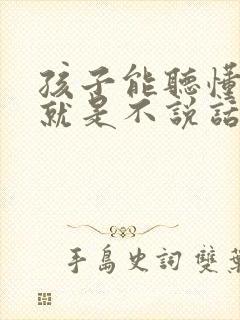 孩子能聽懂
就是不說話
手島史詞 雙葉